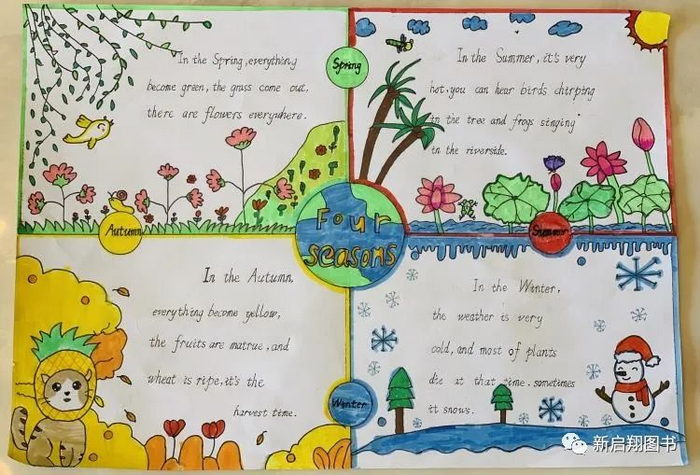 In the Spring, everything
become green, the grass come out.
there are flowers everywhere.
Spring
In the Summer, it's very
hot. you can hear birds chirping
in the tree and frogs singing
in the riverside.
Four
seasons
Autumn
Summer
In the Autumn,
everything become yellow,
the fruits are matrue, and
wheat is ripe, it's the
harvest time.
In the Winter,
the weather is very
cold, and most of plants
die at that time. sometimes
it snows.
Winter
新启翔图书